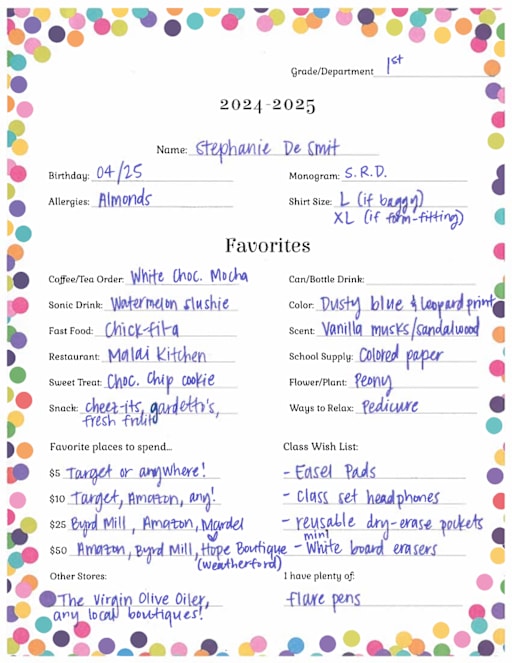 Grade/Department 1st
2024-2025
Name: Stephanie De Smit
Birthday: 04/25 Monogram: S.R.D.
Allergies: Almonds Shirt Size: L (if baggy)
XL (if form-fitting)
Favorites
Coffee/Tea Order: White Choc. Mocha Can/Bottle Drink:
Sonic Drink: Watermelon slushie Color: Dusty blue & leopard print
Fast Food: Chick-fil-a Scent: Vanilla musks/sandalwood
Restaurant: Malai Kitchen School Supply: Colored paper
Sweet Treat: Choc. Chip cookie Flower/Plant: Peony
Snack: cheez-its, gardetto's, Ways to Relax: Pedicure
fresh fruit
Favorite places to spend... Class Wish List:
$5 Target or anywhere! - Easel Pads
$10 Target, Amazon, any! - class set headphones
$25 Byrd Mill, Amazon, Mardel - reusable dry-erase pockets
$50 Amazon, Byrd Mill, Hope Boutique - mini White board erasers
(weatherford)
Other Stores: I have plenty of:
The Virgin Olive Oiler, flare pens
any local boutiques!